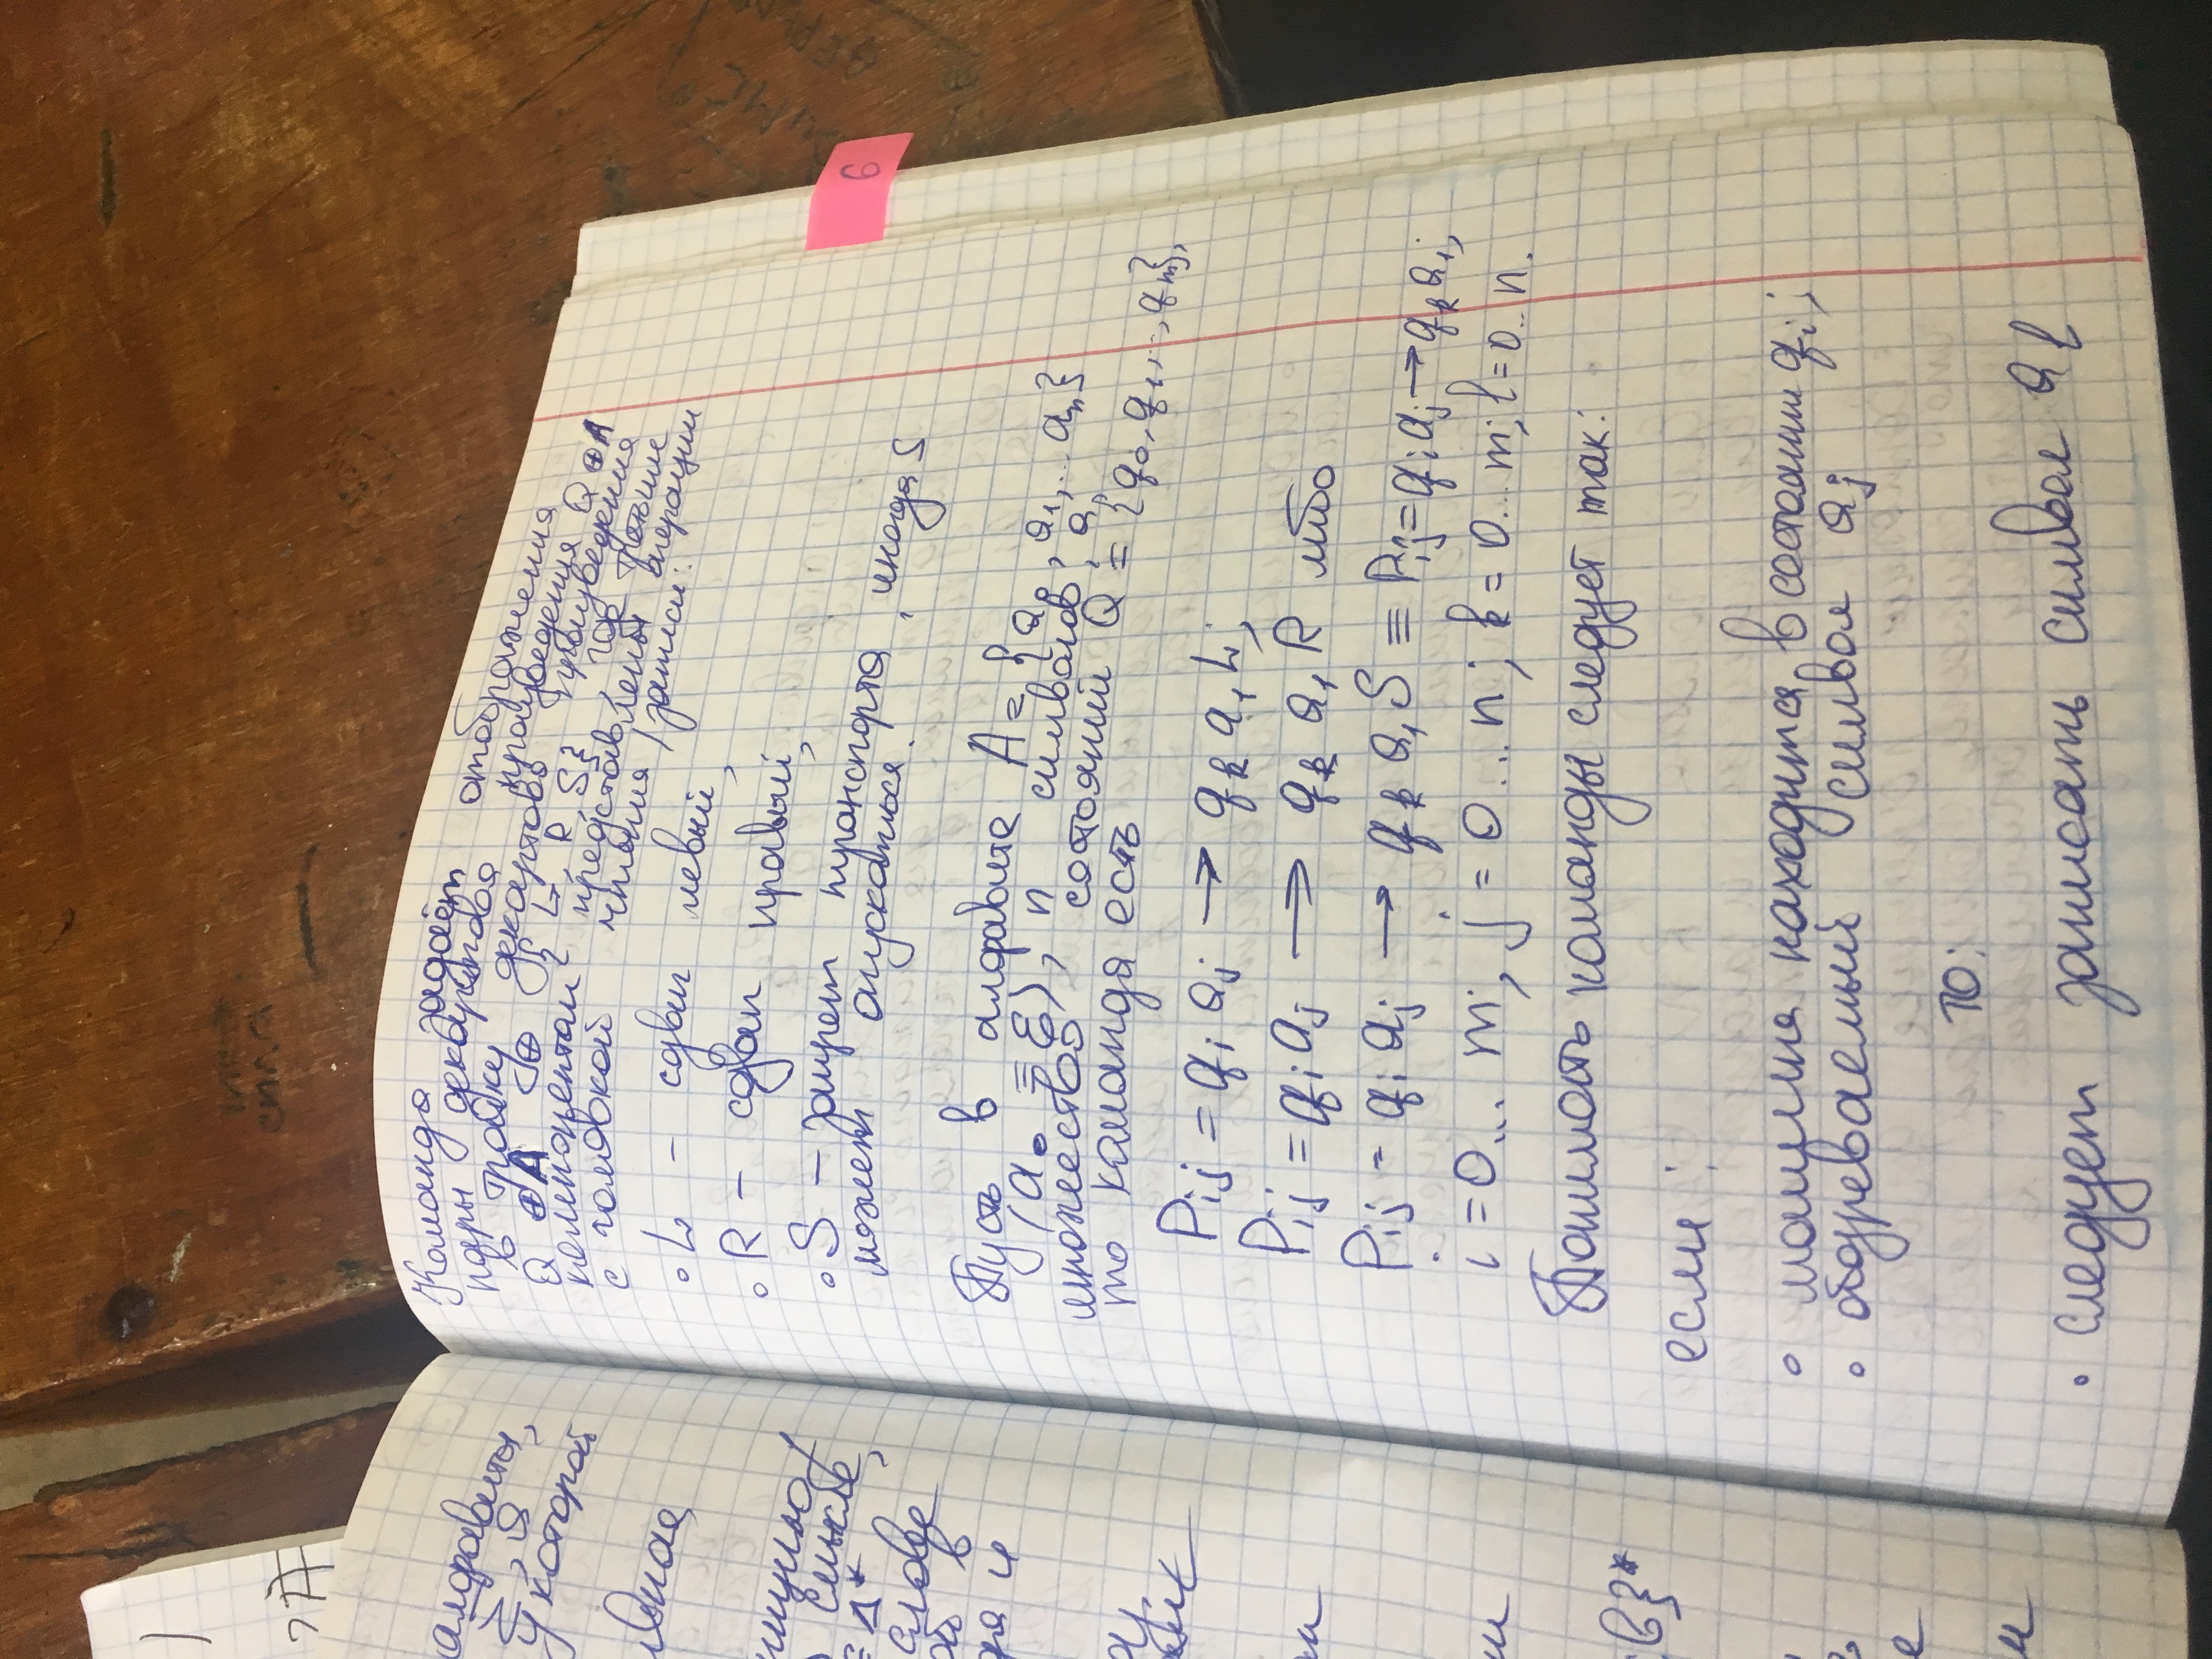 алфавиты,
Σ, Я
у которой
смысле,
Δ*
слове
в
и
6
Команда задаёт отображения
пары декартова произведения Q ⊕ A
в тройку декартово произведения
Q ⊕ A ⊕ { L, R, S}, где третьи
компонентам представлены операции
с головкой чтения / записи:
• L – сдвиг левый,
• R – сдвиг правый,
• S – запрет транспорта, иногда S
может опускаться.
Пусть в алфавите A = {a₀, a₁,... aₙ}
(a₀ ≡ ε), n символов, а
множество состояний Q = {q₀, q₁,..., qₘ},
то команда есть
Pij = qi aj → qk a₁ L;
Pij = qi aj → qk a₁ R либо
Pij = qi aj → qk a₁ S ≡ Pij = qi aj → qk a₁;
i = 0... m; j = 0...n; k = 0...m; l = 0..n.
Понимать команды следует так:
если :
• машина находится в состоянии qi;
• обозреваемый символ aj
то:
• следует записать символ a l